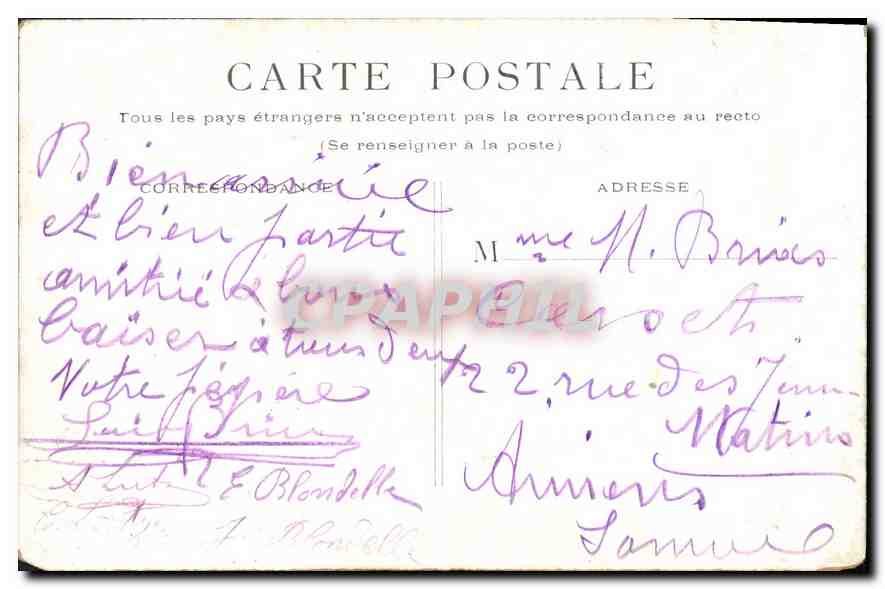 CARTE POSTALE
Tous les pays étrangers n'acceptent pas la correspondance au recto
(Se renseigner à la poste)
CORRESPONDANCE
Bien arrivée
et bien partie
amitié a
baiser à tous deux
Votre pépère
E Blondelle
Blondelle
ADRESSE
M me M. Brias
22 rue des
Matins
Amiens
Somme
CPAPHIL